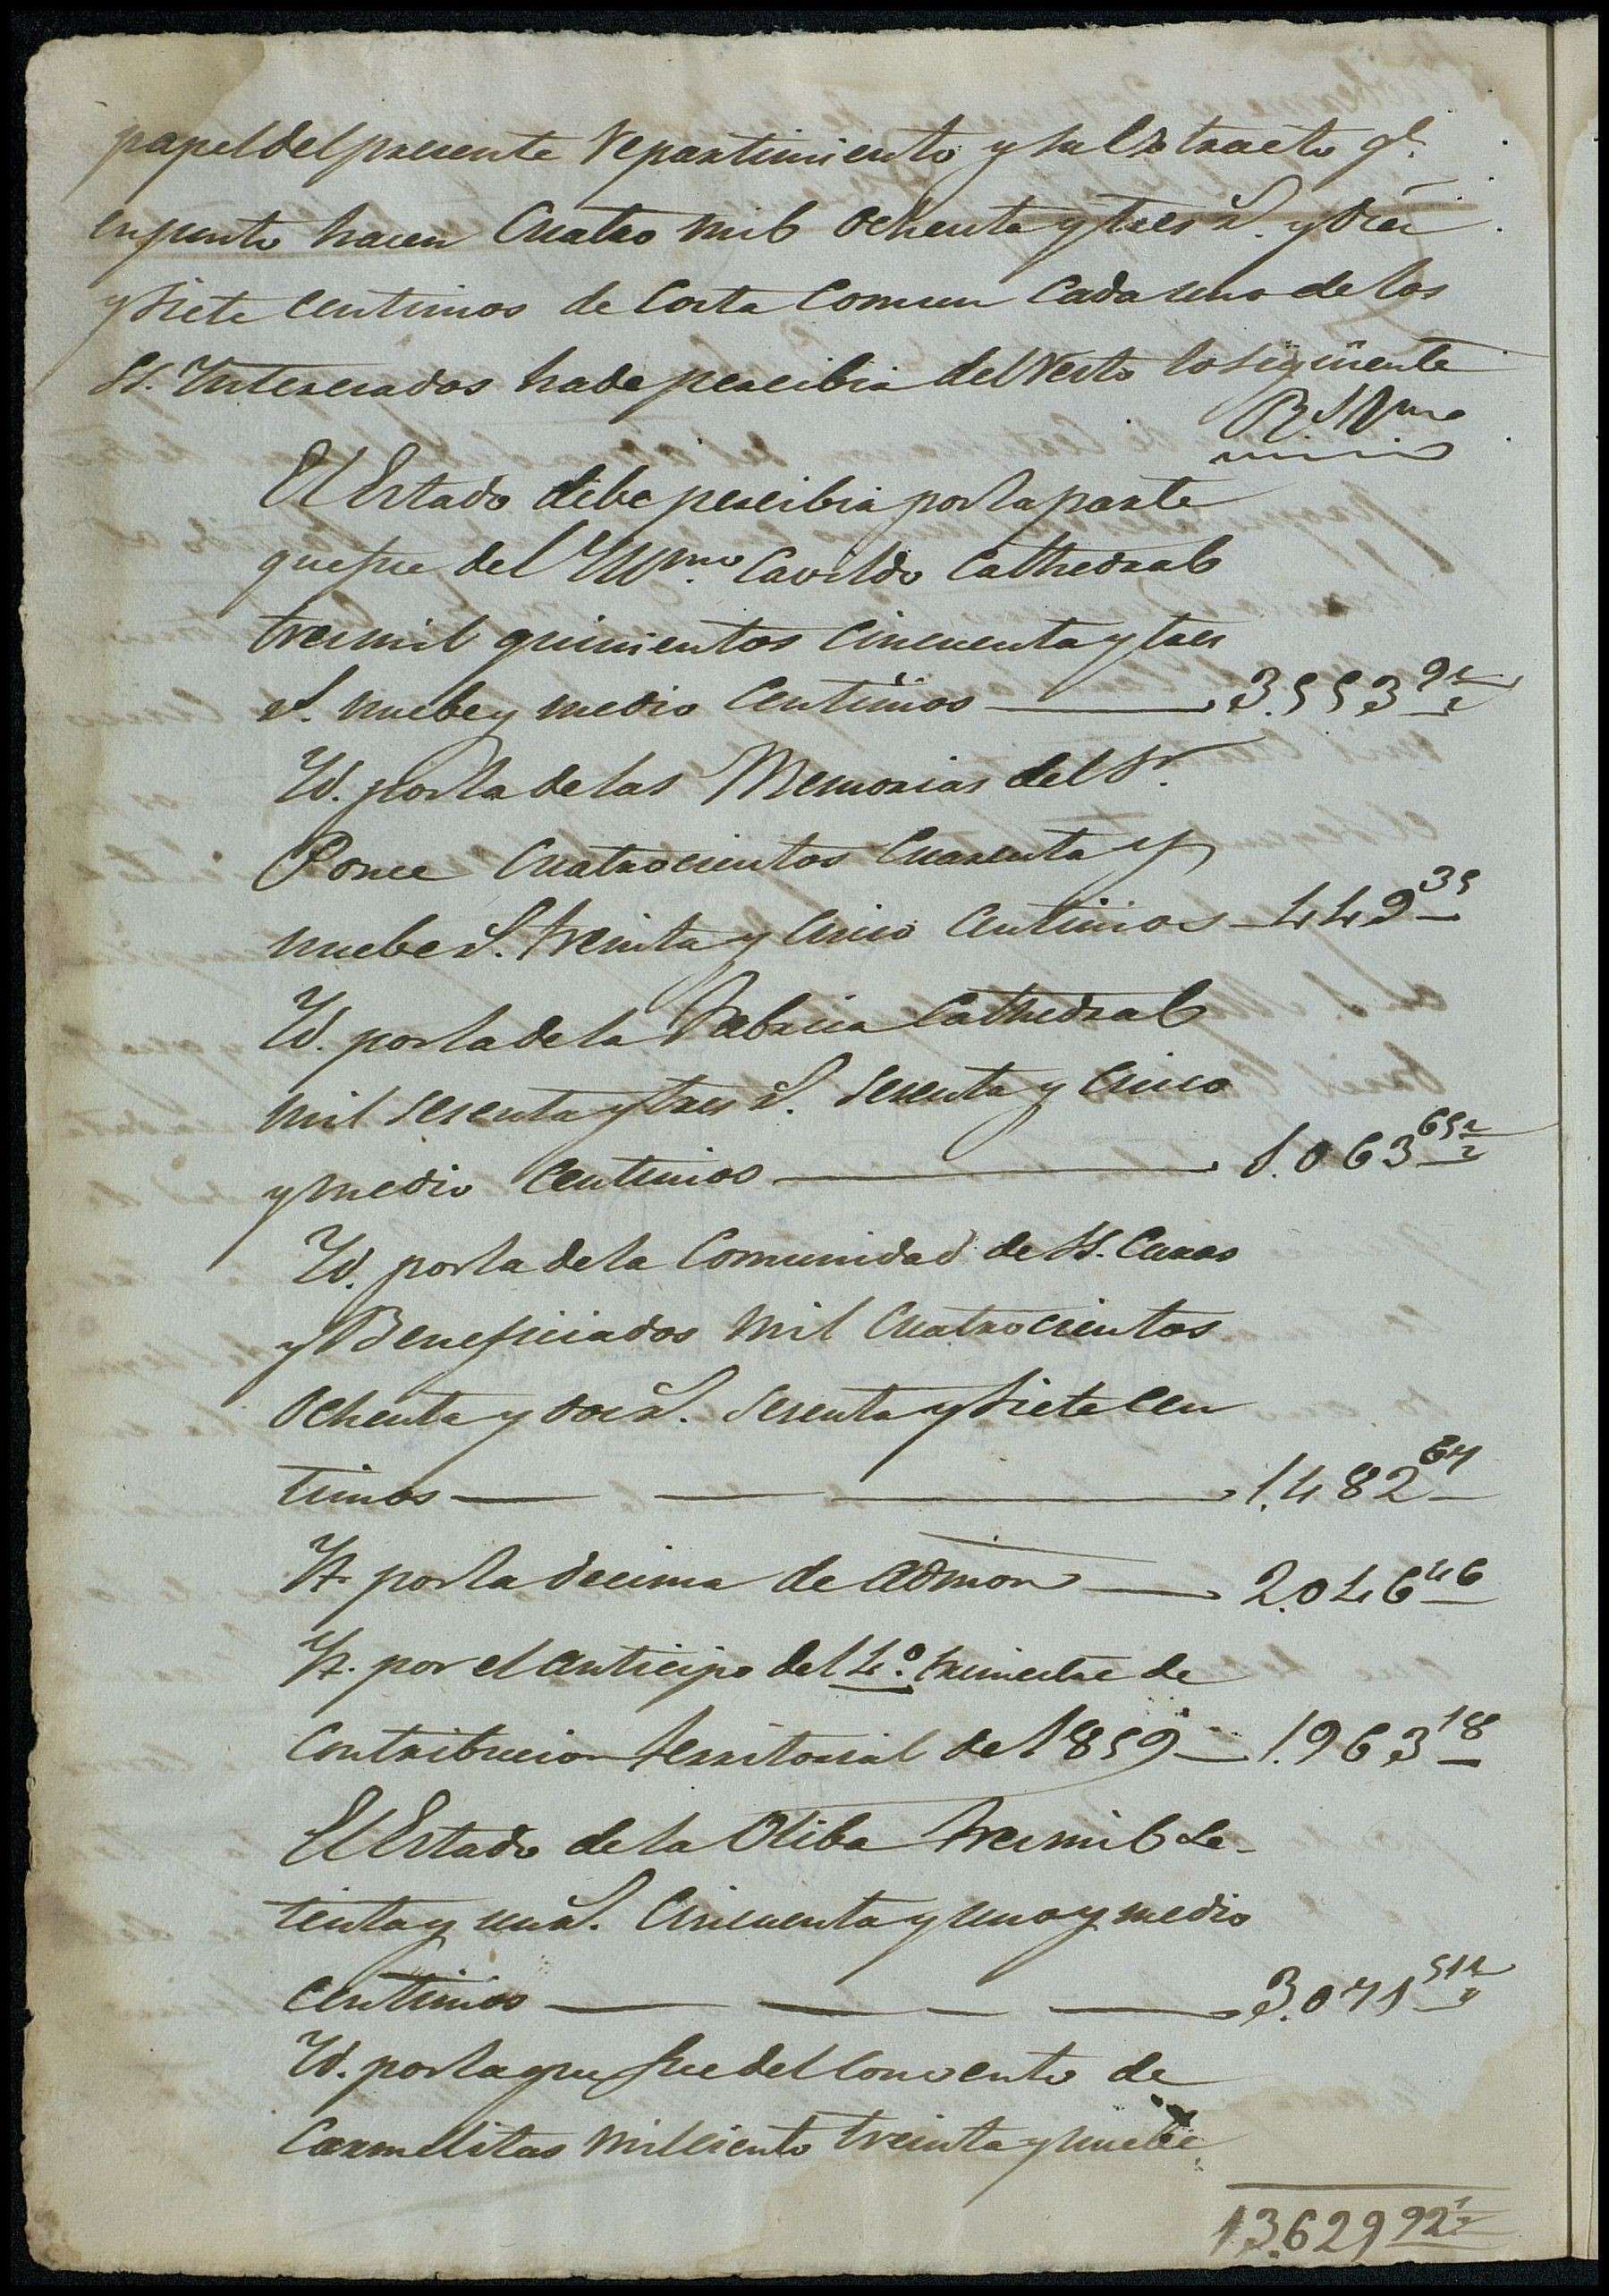 papel del presente Repartimiento y su Extracto q.e
en junto hacen Cuatro mil Ochenta y tres r.s y diez
y siete centimos de Costa Comun Cada uno de los
SS. Interesados ha de percibir del resto lo siguiente
R.s V.on
El Estado debe percibir por la parte
que fue del Yllmo Cavildo Cathedral
tres mil quinientos cincuenta y tres
r.s nuebe y medio Centimos — 3.553 9 1/2
Yd. por la de las Memorias del Sr.
Ponce Cuatrocientos Cuarenta y
nuebe r.s treinta y Cinco Centimos — 449 35
Yd. por la de la Fabrica Cathedral
mil sesenta y tres r.s Sesenta y Cinco
y medio Centimos — 1.063 65 1/2
Yd. por la de la Comunidad de SS. Curas
y Beneficiados Mil Cuatrocientos
Ochenta y dos r.s Sesenta y siete Cen
timos — 1.482 67
Yt. por la decima de admon — 2.046 46
Yt. por el anticipo del 4.º trimestre de
Contribucion territorial de 1859 — 1.963 18
El Estado de la Oliba tres mil Se-
tenta y un r.s Cincuenta y uno y medio
Centimos — 3.071 51 1/2
Yd. por la que fue del Convento de
Carmelitas mil ciento treinta y nuebe
13.629 92 1/2